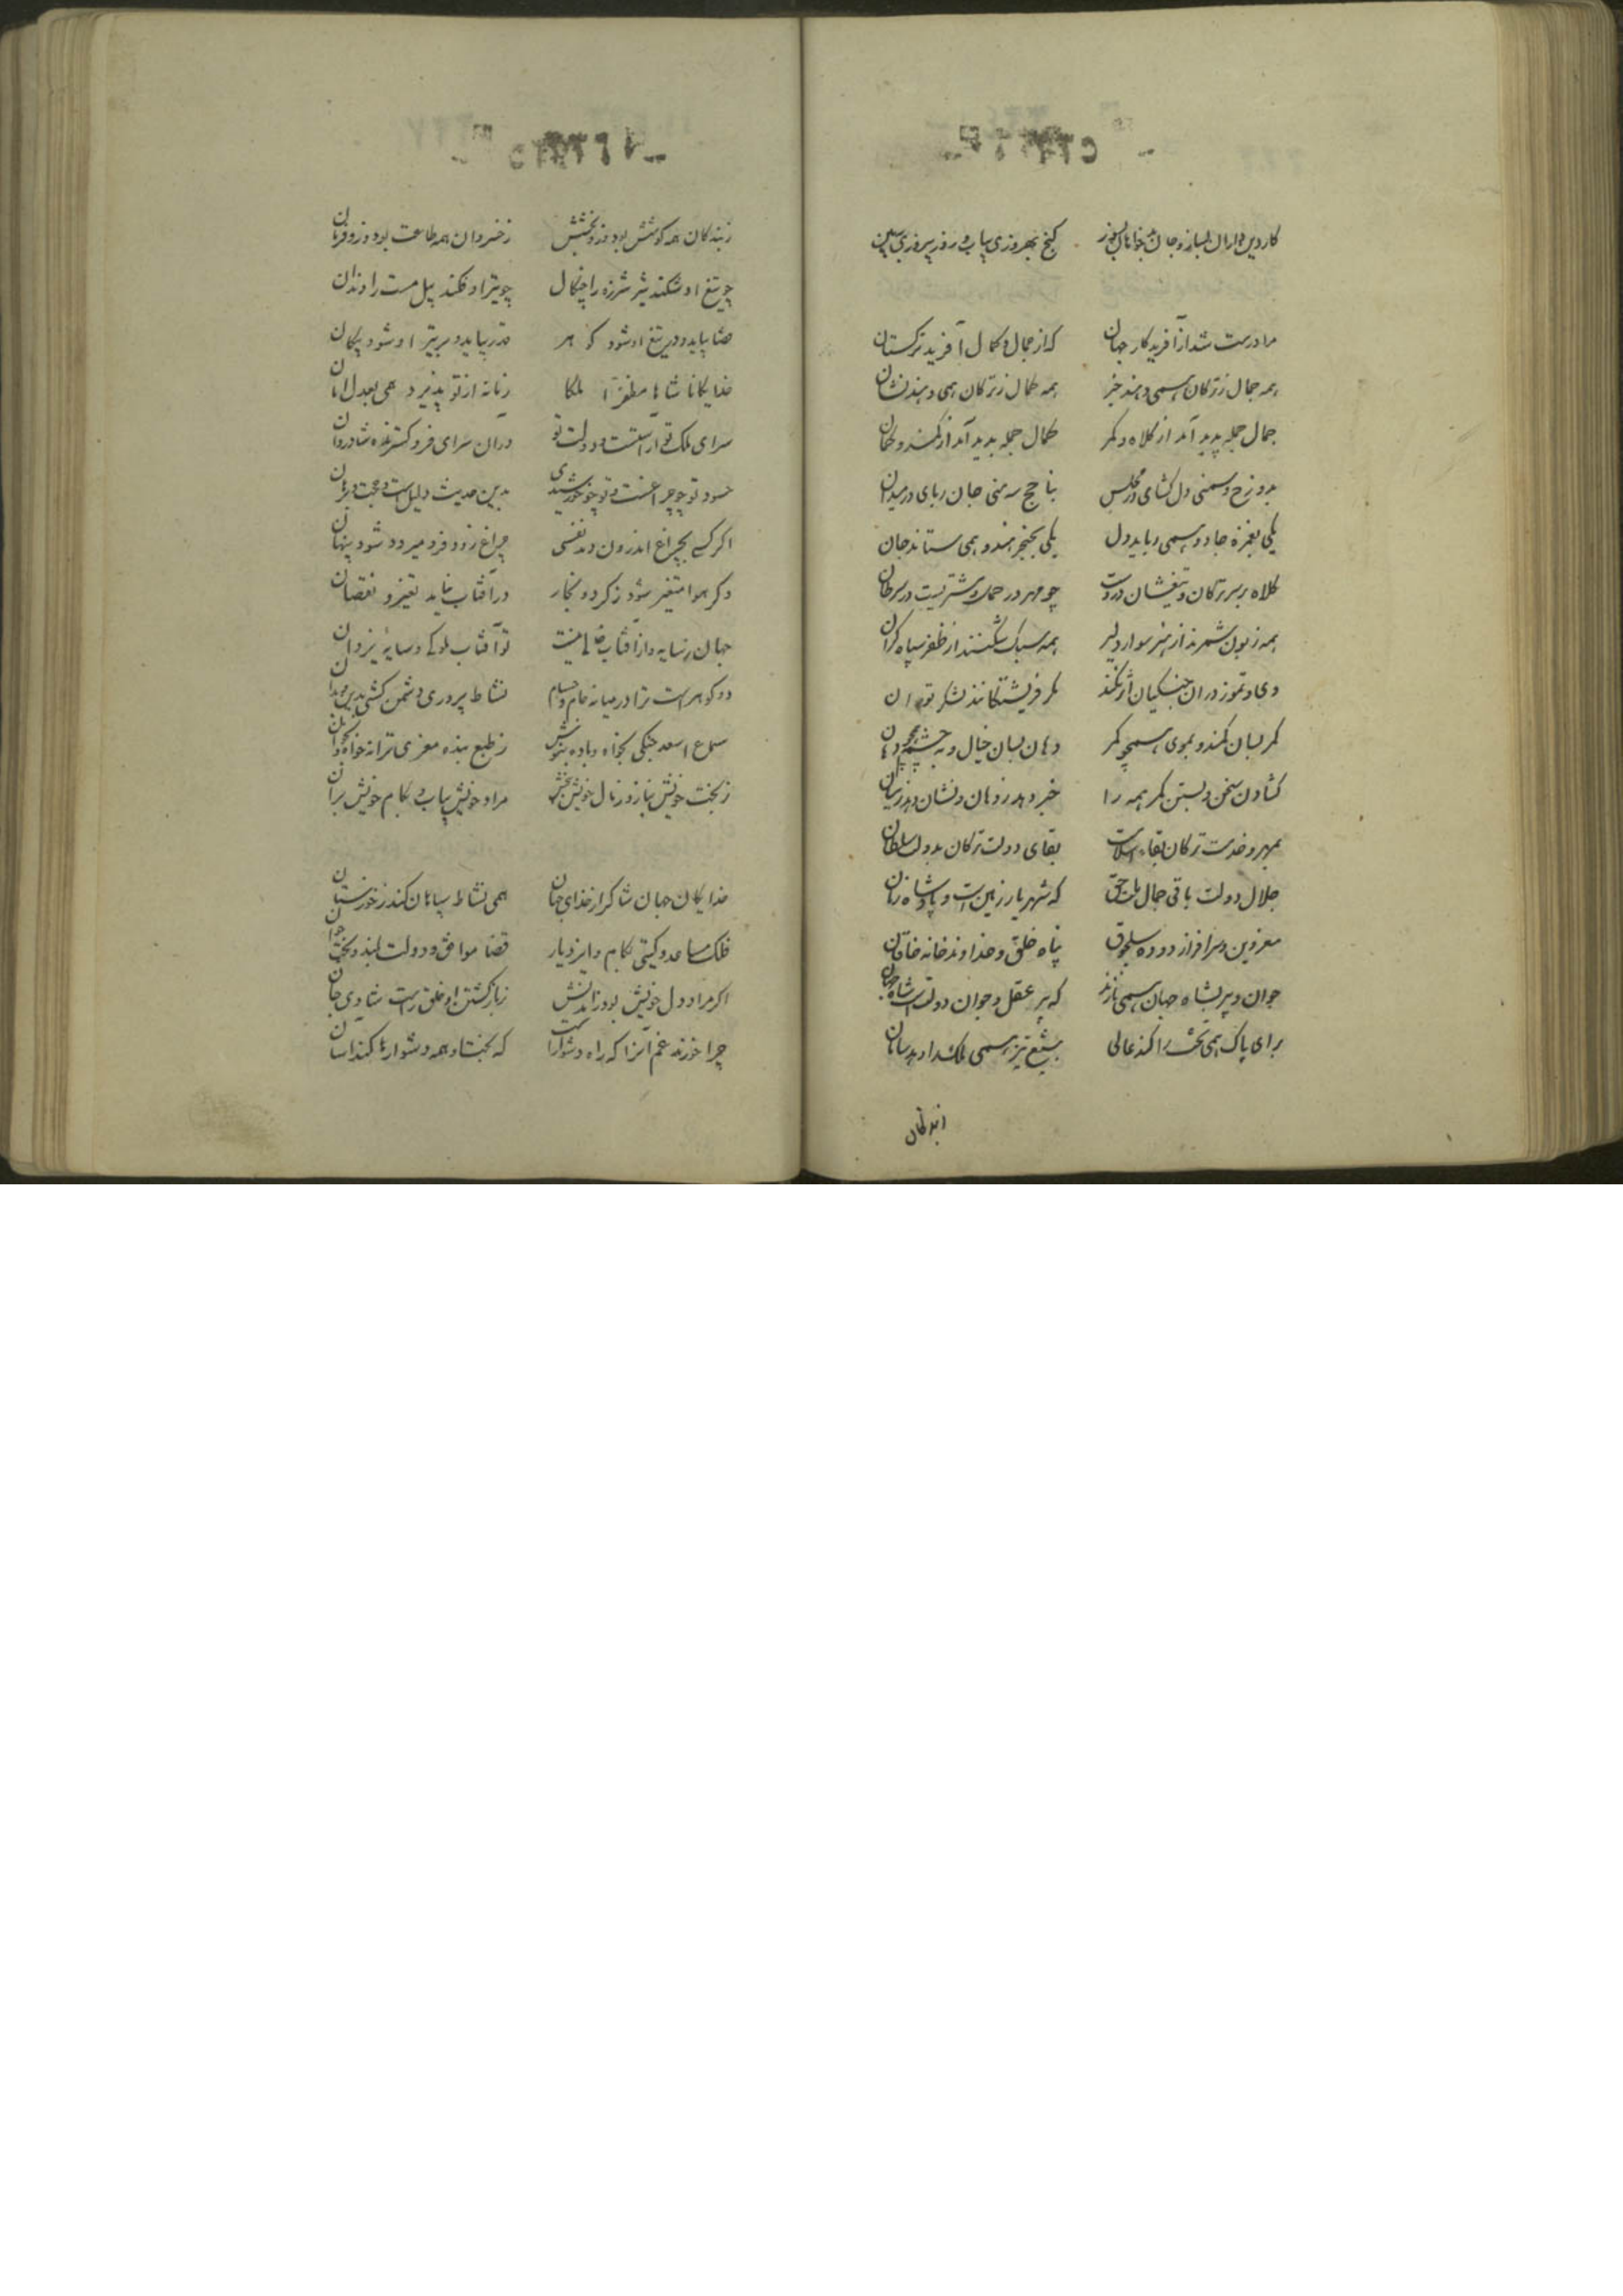 کار دین داران بساز و جان بدخواهان بسوز گنج بهروزی بیاب و روز پیروزی ببین
مرا درست شد از آفریدکار جهان که از جمال و کمال آفرید ترکستان
همه جمال ز ترکان همی دهند خبر همه کمال ز ترکان همی دهند نشان
جمال جمله پدید آمد از کلاه و کمر کمال جمله پدید آمد از کمند و کمان
بدو رخ و سمنی دل کشای در مجلس بناچج سه منی جان ربای در میدان
یکی بغمزهٔ جادو همی رباید دل یکی بخنجر هندو همی ستاند جان
کلاه بر سر ترکان و تیغشان در دست چو مهر در حمل و مشتریست در سرطان
همه زبون شمرند از هنر سوار دلیر همه سبک شکنند از ظفر سپاه کران
دی و تموز در آن جنکیان اثر نکند مکر فریشتکانند لشکر توران
کمر بسان کمند و بموی همچو کمر دهان بسان خیال و بچشم همچو دهان
کشادن سخن و بستن کمر همه را خبر دهد ز دهان و نشان دهد ز میان
بمهر و خدمت ترکان بقاء اسلامست بقای دولت ترکان بدولت سلطان
جلال دولت باقی جمال ملت حق که شهریار زمین است و پادشاه زمان
معز دین و سرافراز دودهٔ سلجوق پناه خلق و خداوند خانهٔ خاقان
جوان و پیر بشاه جهان همی نازند که پیر عقل و جوان دولت است شاه جهان
برای پاک همی تخت را کند عالی بتیغ تیز همی ملک را دهد سامان
ز بندکان همه کوشش بود وزو بخشش ز خسروان همه طاعت بود وزو فرمان
چو تیغ او شکند شیر شرزه را چنکال چو تیر او فکند پیل مست را دندان
قضا بیاید و در تیغ او شود کوهر قدر بیاید و بر تیر او شود پیکان
خدایکانا شاها مظفرا ملکا زمانه از تو پذیرد همی بعدل امان
سرای ملک تو آراستست و دولت تو در آن سرای فرو کسترنده شادروان
حسود تو چو چراغست و تو چو خورشیدی بدین حدیث دلیل است و حجت و برهان
اکر کسی بچراغ اندرون دمد نفسی چراغ زود فرو میرد و شود پنهان
وکر هوا متغیر شود ز کرد و بخار در آفتاب نیاید تغیر و نقصان
جهان ز سایه و از آفتاب خالی نیست تو آفتاب ملوکی و سایهٔ یزدان
دو کوهر است ترا در میانه جام و حسام نشاط پروری و دشمن کشی بدین و بدان
سماع اسعد جنکی بخواه و باده بنوش ز طبع بنده معزی ترانه خواه و بخوان
ز بخت خویش بناز و ز مال خویش ببخش مراد خویش بیاب و بکام خویش بران
خدایکان جهان شاکر از خدای جهان همی نشاط سپاهان کند ز خوزستان
فلک مساعد و کیتی بکام و ایزد یار قضا موافق و دولت بلند و بخت جوان
اکر مراد دل خویش بود ز آمدنش ز بازکشتن او خلق راست شادی جان
چرا خورند غم آنرا که راه دشوارست که بخت او همه دشوارها کند آسان